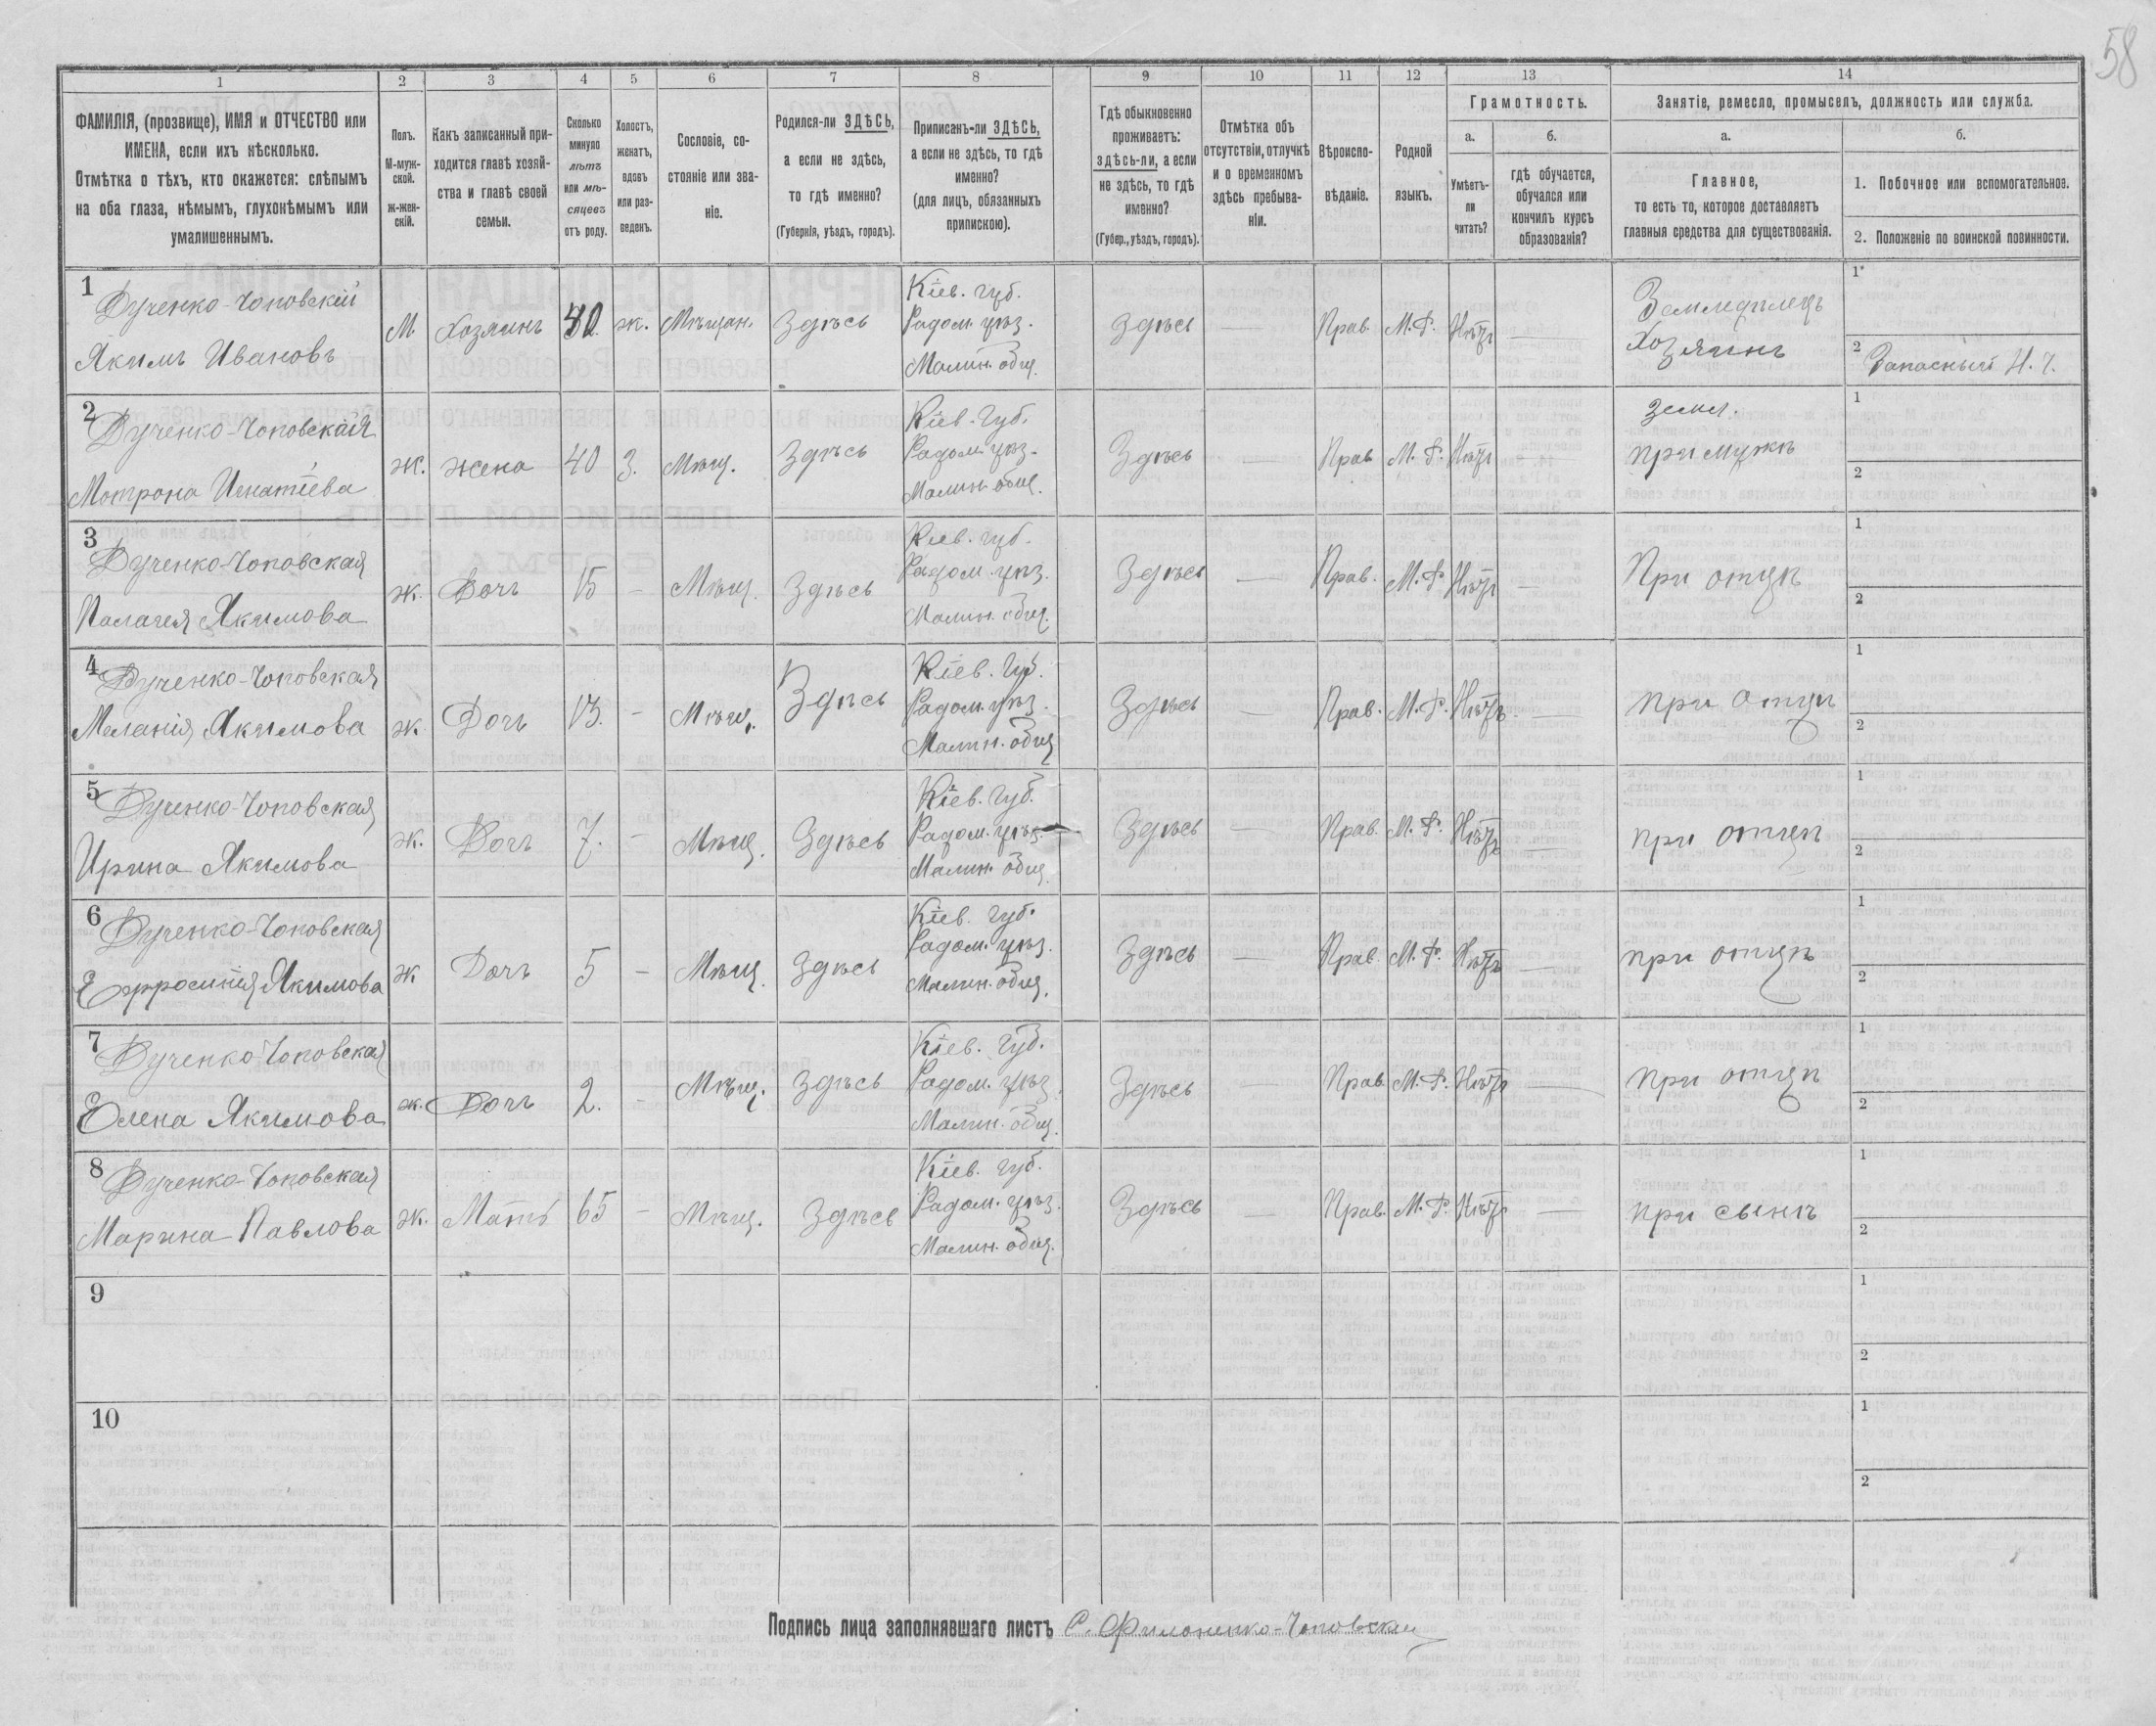 58
1 2 3 4 5 6 7 8 9 10 11 12 13 14
ФАМИЛІЯ, (прозвище), ИМЯ и ОТЧЕСТВО или
ИМЕНА, если ихъ нѣсколько.
Отмѣтка о тѣхъ, кто окажется: слѣпымъ
на оба глаза, нѣмымъ, глухонѣмымъ или
умалишеннымъ.
Полъ.
М-муж-
ской.
ж-жен-
скій.
Какъ записанный при-
ходится главѣ хозяй-
ства и главѣ своей
семьи.
Сколько
минуло
лѣтъ
или мѣ-
сяцевъ
отъ роду.
Холостъ,
женатъ,
вдовъ
или раз-
веденъ.
Сословіе, со-
стояніе или зва-
ніе.
Родился-ли ЗДѢСЬ,
а если не здѣсь,
то гдѣ именно?
(Губернія, уѣздъ, городъ).
Приписанъ-ли ЗДѢСЬ,
а если не здѣсь, то гдѣ
именно?
(для лицъ, обязанныхъ
припискою).
Гдѣ обыкновенно
проживаетъ:
здѣсь-ли, а если
не здѣсь, то гдѣ
именно?
(Губер., уѣздъ, городъ).
Отмѣтка объ
отсутствіи, отлучкѣ
и о временномъ
здѣсь пребыва-
ніи.
Вѣроиспо-
вѣданіе.
Родной
языкъ.
Грамотность.
а.
Умѣетъ-
ли
читать?
б.
гдѣ обучается,
обучался или
кончилъ курсъ
образованія?
Занятіе, ремесло, промыселъ, должность или служба.
а.
Главное,
то есть то, которое доставляетъ
главныя средства для существованія.
б.
1. Побочное или вспомогательное.
2. Положеніе по воинской повинности.
1
Дученко-Чоповскій
Якимъ Ивановъ
М. Хозяинъ 40 ж. Мѣщан. Здѣсь
Кіев. губ.
Радом. уѣз.
Малин. общ.
Здѣсь — Прав. М.Р. Нѣтъ —
Земледѣлецъ
Хозяинъ
1
2 Запасный Н.Ч.
2
Дученко-Чоповская
Мотрона Игнатіева
ж. жена 40 З. Мѣщ. Здѣсь
Кіев. Губ.
Радом. уѣз.
Малин. общ.
Здѣсь — Прав. М.Р. Нѣтъ —
земл.
при мужѣ
1
2
3
Дученко-Чоповская
Палагея Якимова
ж. Дочь 15 — Мѣщ. Здѣсь
Кіев. губ.
Радом. уѣз.
Малин. общ.
Здѣсь — Прав. М.Р. Нѣтъ —
При отцѣ
1
2
4
Дученко-Чоповская
Меланія Якимова
ж. Дочь 13. — Мѣщ. Здѣсь
Кіев. Губ.
Радом. уѣз.
Малин. общ
Здѣсь — Прав. М.Р. Нѣтъ —
при отцѣ
1
2
5
Дученко-Чоповская
Ирина Якимова
ж. Дочь 7. — Мѣщ. Здѣсь
Кіев. Губ.
Радом. уѣз.
Малин. общ.
Здѣсь — Прав. М.Р. Нѣтъ —
при отцѣ
1
2
6
Дученко-Чоповская
Ефросинія Якимова
ж Дочь 5 — Мѣщ. Здѣсь
Кіев. губ.
Радом. уѣз.
Малин. общ.
Здѣсь — Прав. М.Р. Нѣтъ —
при отцѣ
1
2
7
Дученко-Чоповская
Елена Якимова
ж. Дочь 2. — Мѣщ. Здѣсь
Кіев. губ.
Радом. уѣз.
Малин. общ.
Здѣсь — Прав. М.Р. Нѣтъ —
при отцѣ
1
2
8
Дученко-Чоповская
Марина Павлова
ж. Мать 65 — Мѣщ. Здѣсь
Кіев. губ.
Радом. уѣз.
Малин. общ.
Здѣсь — Прав. М.Р. Нѣтъ —
при сынѣ
1
2
9
1
2
10
1
2
Подпись лица заполнявшаго листъ С. Филоненко-Чоповскій